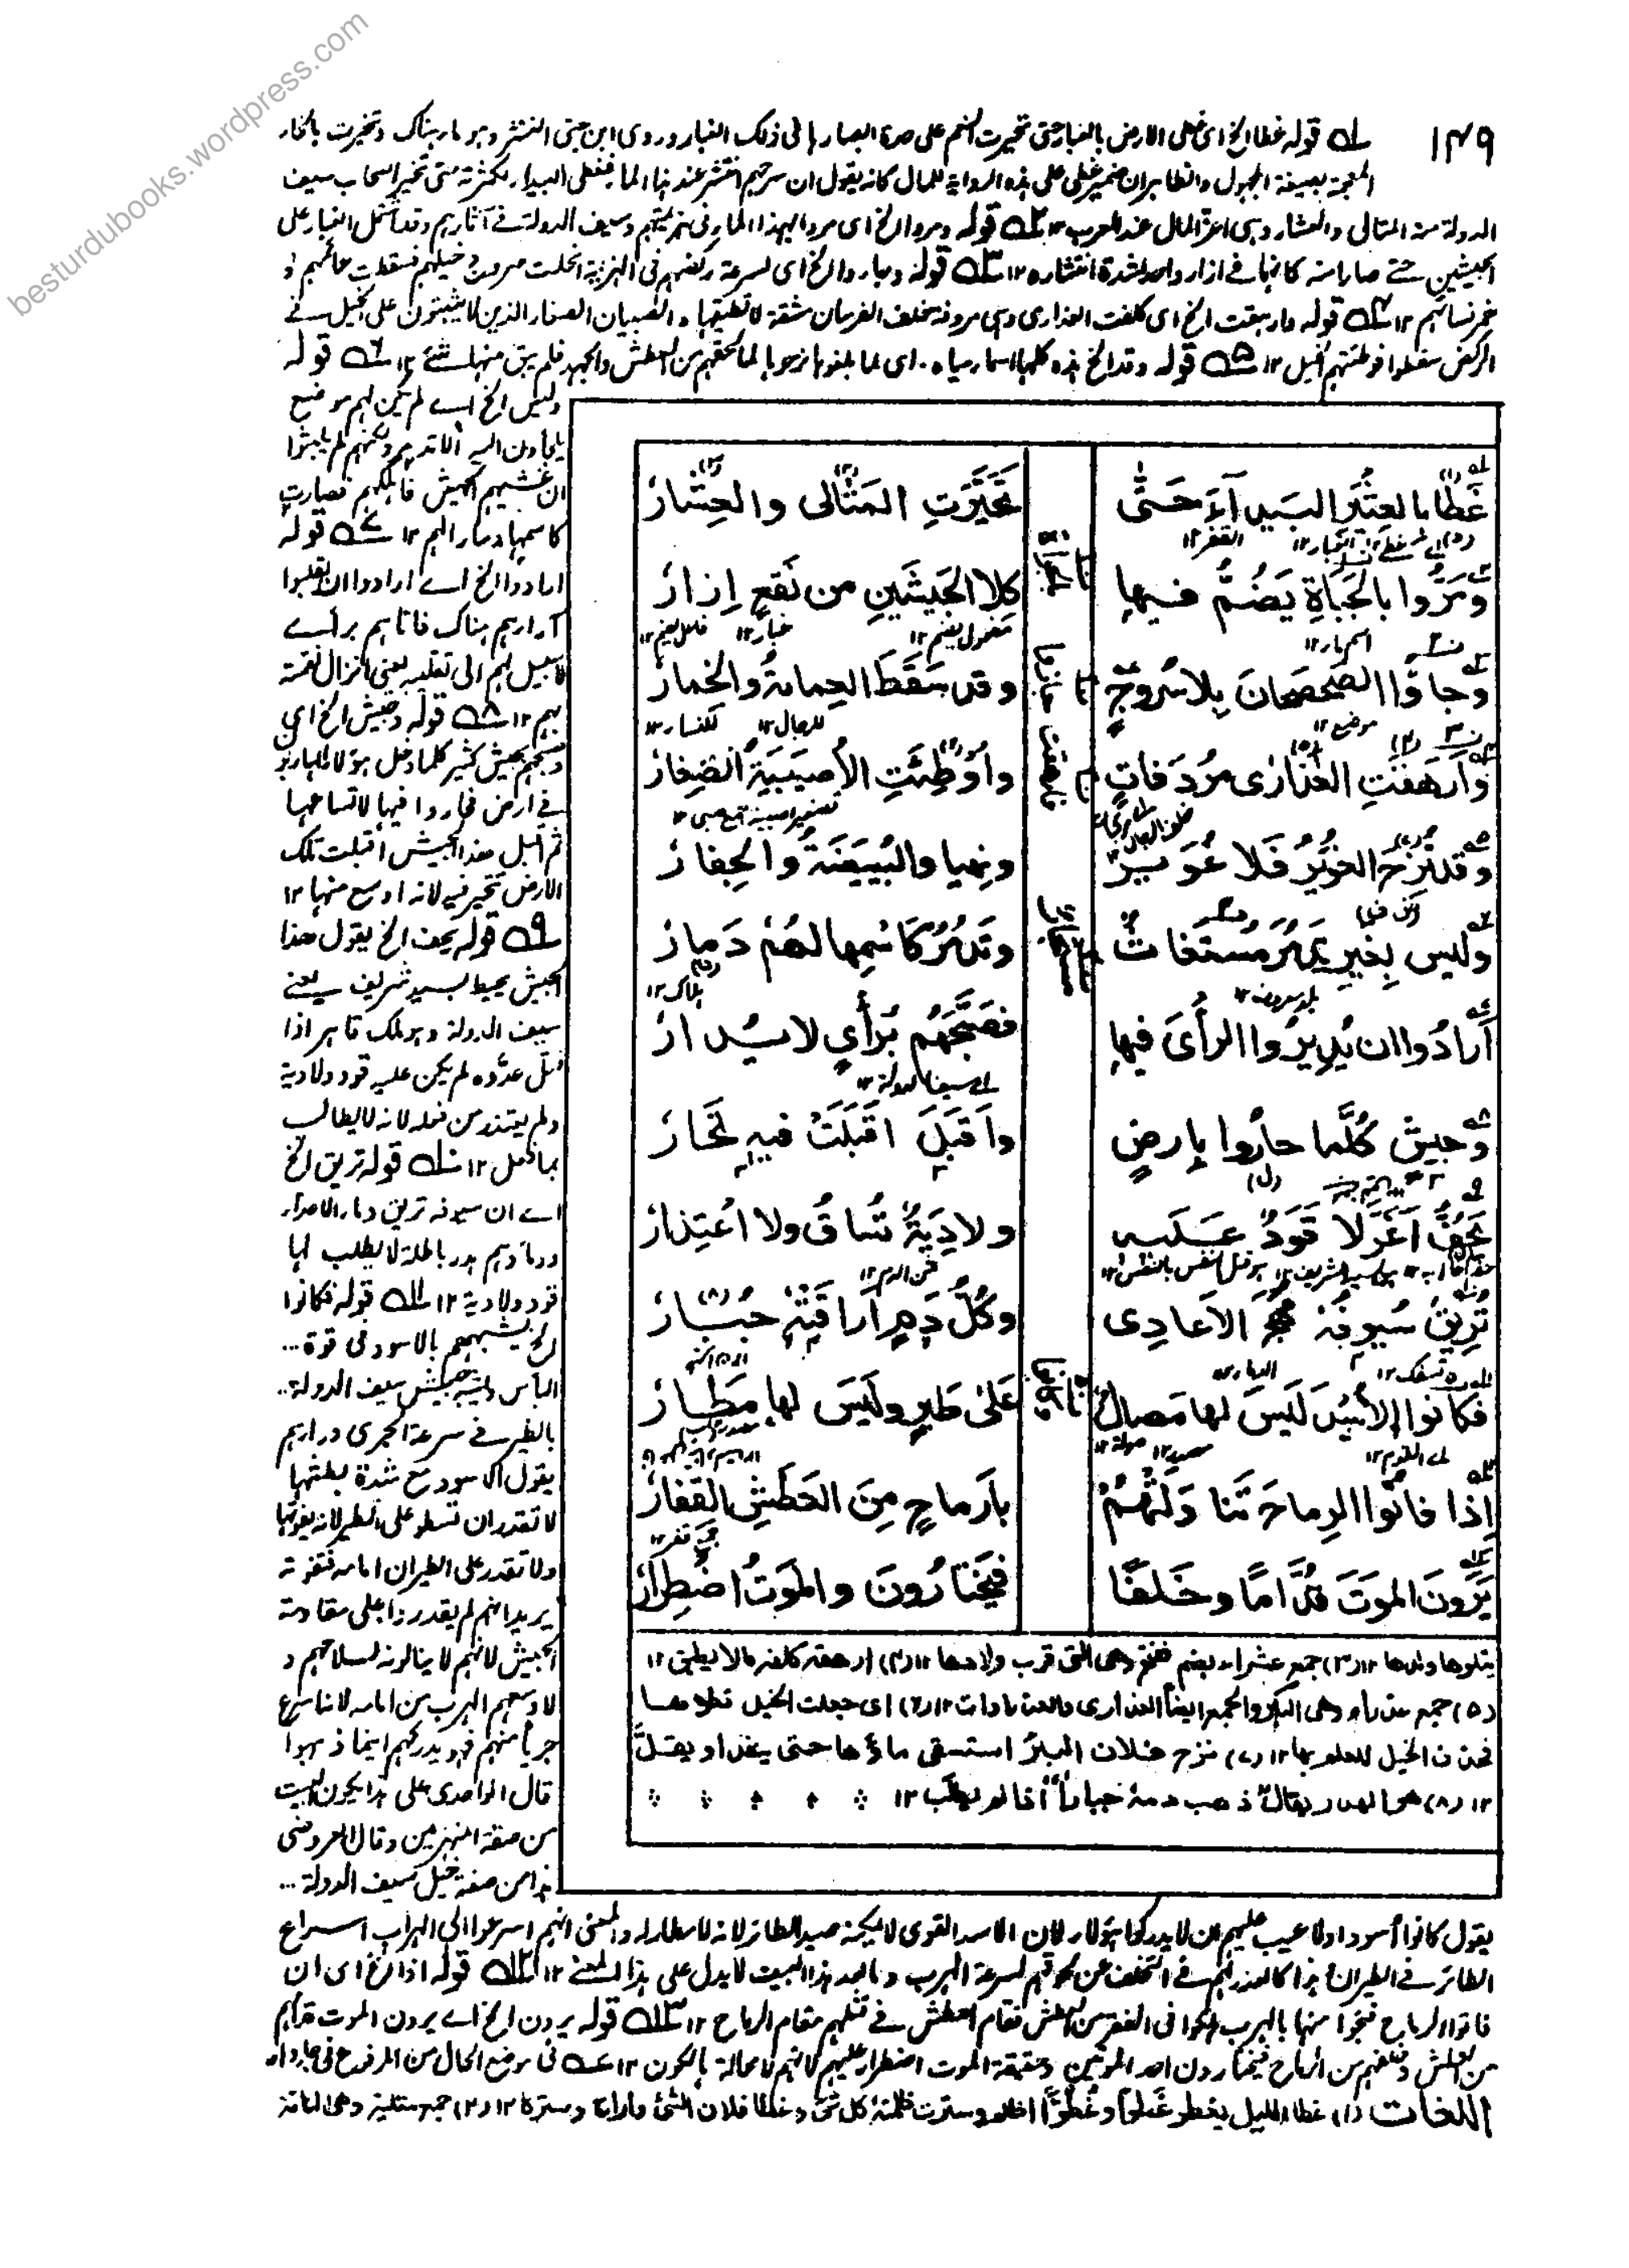 besturdubooks.wordpress.com
١٤٩
قوله غطا الخ اى غطى الارض بالغبار حتى تحيرت النعم على حدة ابصارها فى ذلك الغبار وروى ابن جنى الغنثر وهو ماء هناك وتخيرت بالخاء
المعجمة بصيغة المجهول والظاهر ان ضمير غطى على هذه الرواية للمال كانه يقول ان سرحهم انتشر عند هذا الماء فغطى البيداء لكثرته حتى تخير اصحاب سيف
الدولة منه المتالى والعشار وهى اعز المال عند العرب ١٢ قوله ومروا الخ اى مروا بهذا الماء فى هزيمتهم وسيف الدولة فى آثارهم وقد اشتمل الغبار على
الجيشين حتى صارا منه كانهما فى ازار واحد لشدة انتشاره ١٢ قوله وجاءوا الخ اى لسرعة ركضهم فى الهزيمة انحلت سروج خيلهم فسقطت عمائمهم و
خمر نسائهم ١٢ قوله وارهقت الخ اى كلفت العذارى وهى مردفة خلف الفرسان مشقة لا تطيقها والصبيان الصغار الذين لا يثبتون على الخيل فى
الركض سقطوا فوطئتهم الخيل ١٢ قوله وقد الخ هذه كلها اسماء مياه. اى لما بلغوها نزحوها لما لحقهم من العطش والجهد فلم يبق منها شئ ١٢ قوله
وليس الخ اى لم يكن لهم موضع
يلجأون اليه الا تدمر ولكنهم لم يلبثوا
ان غشيهم الجيش فاهلكهم فصارت
كاسمها دمارا لهم ١٢ قوله
ارادوا الخ اى ارادوا ان يقلبوا
آراءهم هناك فاتاهم برأى
لا سبيل لهم الى تقليبه يعنى انزال نقمته
بهم ١٢ قوله وجيش الخ اى
وصبحهم بجيش كثير كلما دخل هؤلاء الهاربون
فى ارض فحاروا فيها لاتساعها
ثم اقبل هذا الجيش أقبلت تلك
الارض تتحير فيه لانه اوسع منها ١٢
قوله يحف الخ يقول هذا
الجيش يحيط بسيد شريف يعنى
سيف الدولة وهو ملك قاهر اذا
قتل عدوه لم يكن عليه قود ولا دية
ولم يعتذر من فعله لانه لا يطالب
بما فعل ١٢ قوله تريق الخ
اى ان سيوفه تريق دماء الاعداء
ودماؤهم هدر باطلة لا يطلب لها
قود ولا دية ١٢ قوله فكانوا
الخ يشبههم بالاسود فى قوة
البأس ويشبه جيش سيف الدولة
بالطير فى سرعة الجرى وراءهم
يقول الاسود مع شدة بطشها
لا تقدر ان تسطو على الطير لانه يفوتها
ولا تقدر على الطيران امامه فتفوته
يريد انهم لم يقدروا على مقاومة
الجيش لانهم لا ينالونه لسلاحهم و
لا وسعهم الهرب من امامه لانه اسرع
جريا منهم فهو يدركهم اينما ذهبوا
قال الواحدى على هذا يكون البيت
من صفة المنهزمين وقال العروضى
هذا من صفة خيل سيف الدولة
غَطَا بالعِثْيَرِ البَيداءَ حَتّٰى تَحَيَّرَتِ المَتَالى والعِشَارُ
ومَرّوا بالجَبَاةِ يَضُمُّ فيها كِلا الجَيشَينِ من نَقعٍ إزارُ
وجاؤا الصحصحانَ بِلا سُروجٍ وقد سَقَطَ العِمامةُ والخِمارُ
وأُرهِقَتِ العَذارٰى مُردَفاتٍ وأُوطِئَتِ الأُصَيبِيَةُ الصِغارُ
وقد نُزِحَ الغُوَيرُ فَلا غُوَيرٌ ونِهيا والبُيَيضَةُ والجِفارُ
وليس بِغيرِ تَدمُرَ مُستَغاثٌ وتَدمُرُ كاسْمِها لهُم دَمارُ
أرادُوا ان يُديرُوا الرأىَ فيها فصَبَّحَهُم بِرأىٍ لا يُدارُ
وجيشٍ كُلَّما حارُوا بارضٍ واَقبَلَ اقبَلَتْ فيه تَحارُ
يَحُفُّ اَغَرَّ لا قَوَدٌ عَلَيه ولا دِيَةٌ تُساقُ ولا اعْتِذارُ
تُريقُ سُيوفُهُ مُهَجَ الاَعادِى وكُلُّ دَمٍ اَراقَتهُ جُبَارُ
فكانُوا الأُسْدَ لَيسَ لها مَصالٌ عَلٰى طَيرٍ ولَيسَ لها مَطارُ
إذا فاتُوا الرِماحَ تَناوَلَتْهُمْ بأرماحٍ مِنَ العَطَشِ القِفارُ
يَرَونَ الموتَ قُدّاماً وخَلفًا فَيَختارُونَ والموتُ اضْطِرارُ
يتلوها ولدها ١٢ (٣) جمع عشراء بضم ففتح وهى التى قرب ولادها ١٢ (٤) ارهقه كلفه مالا يطيق ١٢
(٥) جمع عذراء وهى البكر والجمع ايضا العذارى والعذراوات ١٢ (٦) اى جعلت الخيل تطؤها
فحذف الخيل للعلم بها ١٢ (٧) نزح فلان البئر استسقى ماءها حتى ينفد او يقلّ
١٢ (٨) هو الهدر يقال ذهب دمه جباراً اذا لم يطلب ١٢
يقول كانوا أسودا ولا عيب عليهم ان لا يدركوا هؤلاء لان الاسد القوى لا يمكنه صيد الطائر لانه لا مطار له والمعنى انهم اسرعوا الى الهراب اسراع
الطائر فى الطيران هذا كالعذر لهم فى التخلف عن لحوقهم لسرعة الهرب وما بعد هذا البيت لا يدل على هذا المعنى ١٢ قوله اذا الخ اى ان
فاتوا الرماح فنجوا منها بالهرب هلكوا فى القفر من العطش فقام العطش فى قتلهم مقام الرماح ١٢ قوله يرون الخ اى يرون الموت قدامهم
من العطش وخلفهم من الرماح فيختارون احد الموتين وحقيقة الموت اضطرار عليهم لانهم لا محالة هالكون ١٢ فى موضع الحال من المرفوع فى جاءوا ١٢
اللغات (١) غطا الليل يغطو غَطْواً وغُطُوّاً اظلم وسترت ظلمته كل شئ وغطا فلان الشئ واراه وستره ١٢ (٢) جمع متلية وهى الناقة